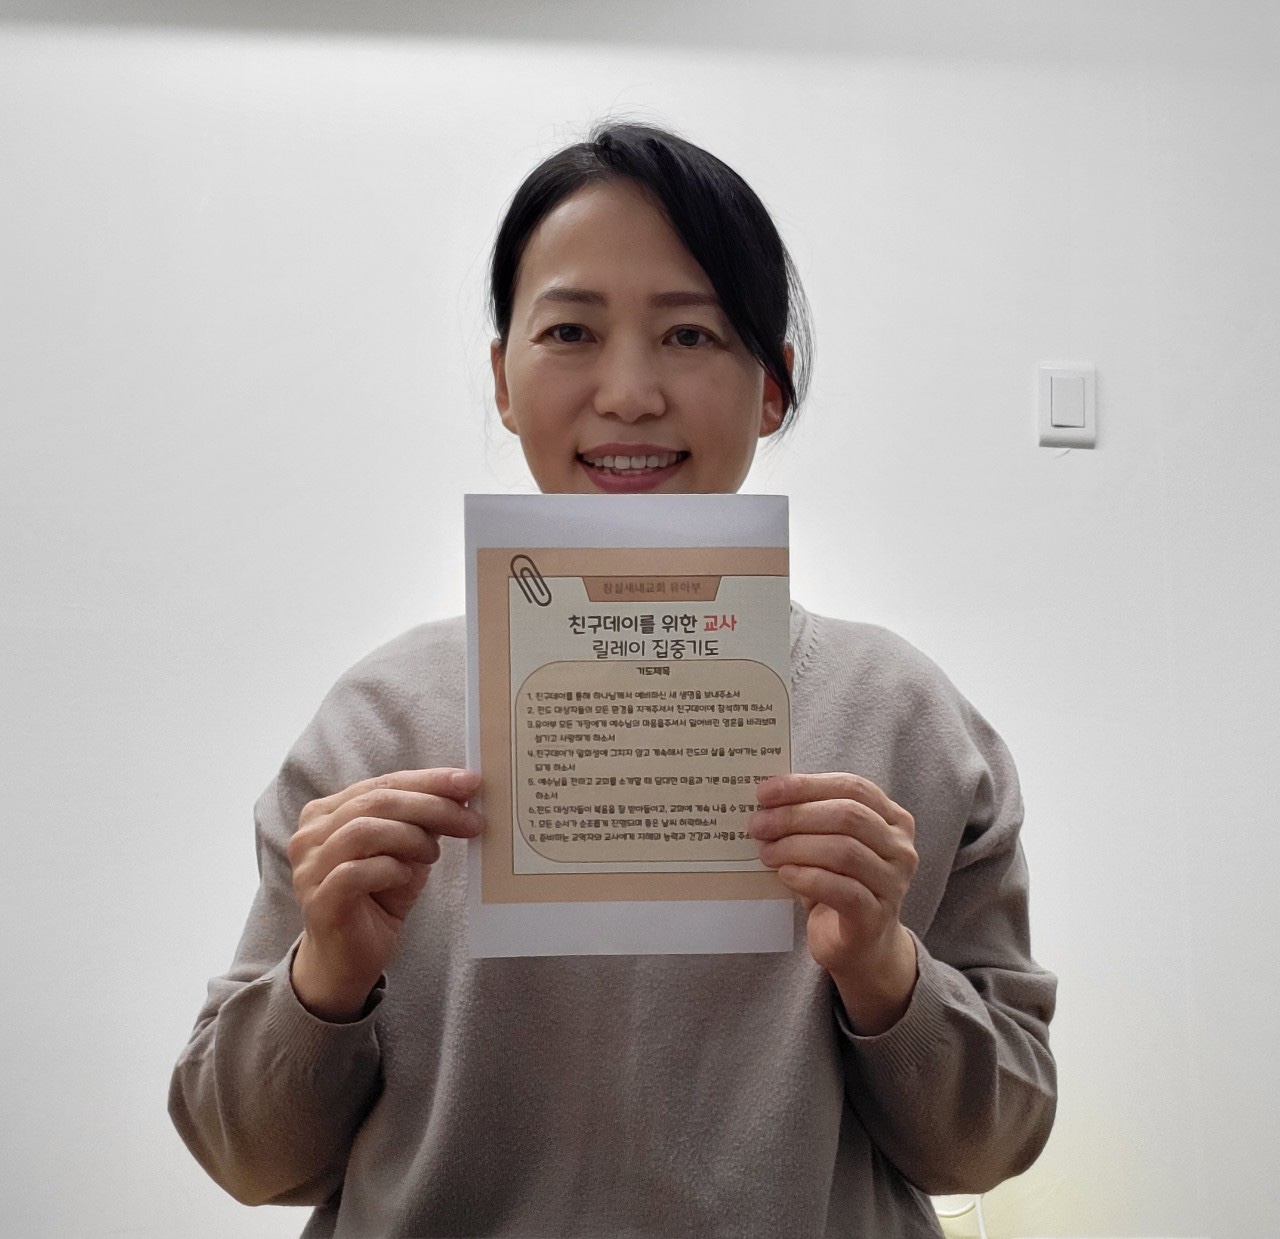 잠실새내교회 유아부
친구데이를 위한 교사
릴레이 집중기도
기도제목
1. 친구데이를 통해 하나님께서 예비하신 새 생명을 보내주소서
2. 전도 대상자들의 모든 환경을 지켜주셔서 친구데이에 참석하게 하소서
3.유아부 모든 가정에게 예수님의 마음을주셔서 잃어버린 영혼을 바라보며
섬기고 사랑하게 하소서
4.친구데이가 일회성에 그치지 않고 계속해서 전도의 삶을 살아가는 유아부
되게 하소서
5. 예수님을 전하고 교회를 소개할 때 담대한 마음과 기쁜 마음으로
하소서
6.전도 대상자들이 복음을 잘 받아들이고, 교회에 계속 나올 수 있게
7. 모든 순서가 순조롭게 진행되며 좋은 날씨 허락하소서
8. 준비하는 교역자와 교사에게 지혜와 능력과 건강과 사랑을